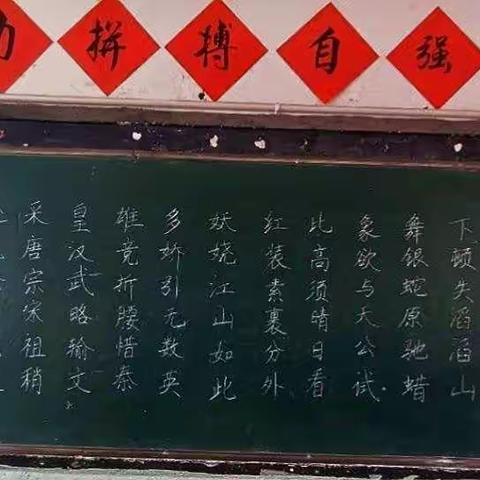 拼搏自强
下顿失滔滔山
舞银蛇原驰蜡
象欲与天公试
比高须晴日看
红装素裹分外
妖娆江山如此
多娇引无数英
雄竞折腰惜秦
皇汉武略输文
采唐宗宋祖稍